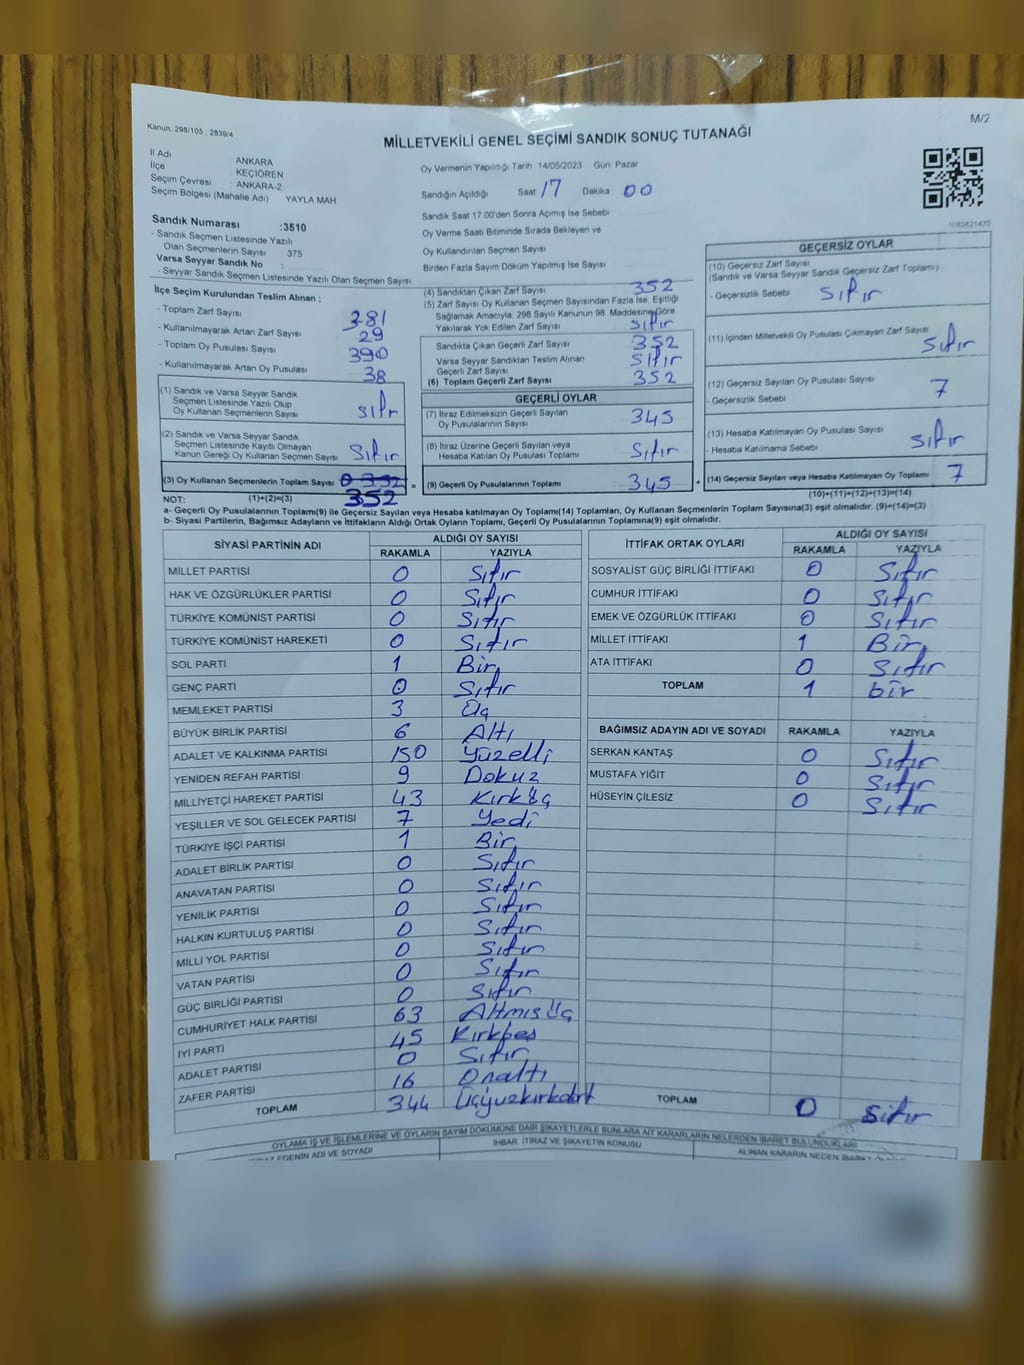 M/2
Kanun, 298/105 , 2839/4
MİLLETVEKİLİ GENEL SEÇİMİ SANDIK SONUÇ TUTANAĞI
İl Adı ANKARA
İlçe KEÇİÖREN
Seçim Çevresi ANKARA-2
Seçim Bölgesi (Mahalle Adı) YAYLA MAH
Sandık Numarası :3510
- Sandık Seçmen Listesinde Yazılı
Olan Seçmenlerin Sayısı : 375
Varsa Seyyar Sandık No :
- Seyyar Sandık Seçmen Listesinde Yazılı Olan Seçmen Sayısı
Oy Vermenin Yapıldığı Tarih 14/05/2023 Gün: Pazar
Sandığın Açıldığı Saat 17 Dakika 00
Sandık Saat 17.00'den Sonra Açımış İse Sebebi
Oy Verme Saati Bitiminde Sırada Bekleyen ve
Oy Kullandırılan Seçmen Sayısı
Birden Fazla Sayım Döküm Yapılmış İse Sayısı
1085821470
İlçe Seçim Kurulundan Teslim Alınan ;
- Toplam Zarf Sayısı 381
- Kullanılmayarak Artan Zarf Sayısı 29
- Toplam Oy Pusulası Sayısı 390
- Kullanılmayarak Artan Oy Pusulası 38
(1) Sandık ve Varsa Seyyar Sandık
Seçmen Listesinde Yazılı Olup
Oy Kullanan Seçmenlerin Sayısı sıfır
(2) Sandık ve Varsa Seyyar Sandık
Seçmen Listesinde Kayıtlı Olmayan
Kanun Gereği Oy Kullanan Seçmen Sayısı Sıfır
(3) Oy Kullanan Seçmenlerin Toplam Sayısı 0 352
(1)+(2)=(3) 352
(4) Sandıktan Çıkan Zarf Sayısı 352
(5) Zarf Sayısı Oy Kullanan Seçmen Sayısından Fazla İse, Eşitliği
Sağlamak Amacıyla, 298 Sayılı Kanunun 98. Maddesine Göre
Yakılarak Yok Edilen Zarf Sayısı sıfır
Sandıkta Çıkan Geçerli Zarf Sayısı 352
Varsa Seyyar Sandıktan Teslim Alınan
Geçerli Zarf Sayısı Sıfır
(6) Toplam Geçerli Zarf Sayısı 352
GEÇERLİ OYLAR
(7) İtiraz Edilmeksizin Geçerli Sayılan
Oy Pusulalarının Sayısı 345
(8) İtiraz Üzerine Geçerli Sayılan veya
Hesaba Katılan Oy Pusulası Toplamı Sıfır
= (9) Geçerli Oy Pusulalarının Toplamı 345
GEÇERSİZ OYLAR
(10) Geçersiz Zarf Sayısı
(Sandık ve Varsa Seyyar Sandık Geçersiz Zarf Toplamı)
- Geçersizlik Sebebi sıfır
(11) İçinden Milletvekili Oy Pusulası Çıkmayan Zarf Sayısı sıfır
(12) Geçersiz Sayılan Oy Pusulası Sayısı 7
- Geçersizlik Sebebi
(13) Hesaba Katılmayan Oy Pusulası Sayısı sıfır
- Hesaba Katılmama Sebebi
+ (14) Geçersiz Sayılan veya Hesaba Katılmayan Oy Toplamı 7
(10)+(11)+(12)+(13)=(14)
NOT:
a- Geçerli Oy Pusulalarının Toplam(9) ile Geçersiz Sayılan veya Hesaba katılmayan Oy Toplamı(14) Toplamları, Oy Kullanan Seçmenlerin Toplam Sayısına(3) eşit olmalıdır. (9)+(14)=(3)
b- Siyasi Partilerin, Bağımsız Adayların ve İttifakların Aldığı Ortak Oyların Toplamı, Geçerli Oy Pusulalarının Toplamına(9) eşit olmalıdır.
SİYASİ PARTİNİN ADI ALDIĞI OY SAYISI
RAKAMLA YAZIYLA
MİLLET PARTİSİ 0 Sıfır
HAK VE ÖZGÜRLÜKLER PARTİSİ 0 Sıfır
TÜRKİYE KOMÜNİST PARTİSİ 0 Sıfır
TÜRKİYE KOMÜNİST HAREKETİ 0 Sıfır
SOL PARTİ 1 Bir
GENÇ PARTİ 0 Sıfır
MEMLEKET PARTİSİ 3 Üç
BÜYÜK BİRLİK PARTİSİ 6 Altı
ADALET VE KALKINMA PARTİSİ 150 Yüzelli
YENİDEN REFAH PARTİSİ 9 Dokuz
MİLLİYETÇİ HAREKET PARTİSİ 43 Kırküç
YEŞİLLER VE SOL GELECEK PARTİSİ 7 Yedi
TÜRKİYE İŞÇİ PARTİSİ 1 Bir
ADALET BİRLİK PARTİSİ 0 Sıfır
ANAVATAN PARTİSİ 0 Sıfır
YENİLİK PARTİSİ 0 Sıfır
HALKIN KURTULUŞ PARTİSİ 0 Sıfır
MİLLİ YOL PARTİSİ 0 Sıfır
VATAN PARTİSİ 0 Sıfır
GÜÇ BİRLİĞİ PARTİSİ 0 Sıfır
CUMHURİYET HALK PARTİSİ 63 Altmışüç
İYİ PARTİ 45 Kırkbeş
ADALET PARTİSİ 0 Sıfır
ZAFER PARTİSİ 16 Onaltı
TOPLAM 344 Üçyüzkırkdört
İTTİFAK ORTAK OYLARI ALDIĞI OY SAYISI
RAKAMLA YAZIYLA
SOSYALİST GÜÇ BİRLİĞİ İTTİFAKI 0 Sıfır
CUMHUR İTTİFAKI 0 Sıfır
EMEK VE ÖZGÜRLÜK İTTİFAKI 0 Sıfır
MİLLET İTTİFAKI 1 Bir
ATA İTTİFAKI 0 Sıfır
TOPLAM 1 bir
BAĞIMSIZ ADAYIN ADI VE SOYADI RAKAMLA YAZIYLA
SERKAN KANTAŞ 0 Sıfır
MUSTAFA YİĞİT 0 Sıfır
HÜSEYİN ÇİLESİZ 0 Sıfır
TOPLAM 0 Sıfır
OYLAMA İŞ VE İŞLEMLERİNE VE OYLARIN SAYIM DÖKÜMÜNE DAİR ŞİKAYETLERLE BUNLARA AİT KARARLARIN NELERDEN İBARET BULUNDUKLARI
EDENİN ADI VE SOYADI İHBAR, İTİRAZ VE ŞİKAYETİN KONUSU ALINAN KARARIN NEDEN İBARET